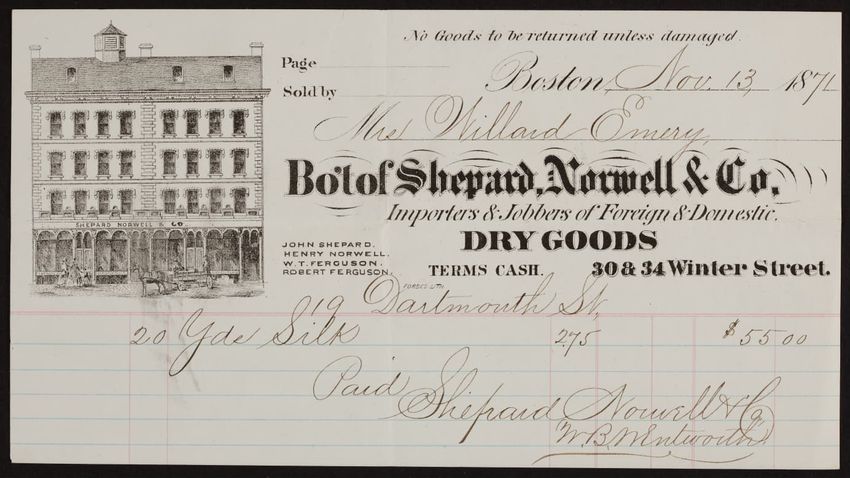 No Goods to be returned unless damaged.
Page
Boston, Nov. 13, 1871
Sold by
Mrs Willard Emery,
Bo't of Shepard, Norwell & Co,
Importers & Jobbers of Foreign & Domestic.
SHEPARD NORWELL & CO
JOHN SHEPARD.
HENRY NORWELL.
W. T. FERGUSON.
ROBERT FERGUSON.
DRY GOODS
TERMS CASH.
30 & 34 Winter Street.
FORBES LITH
119 Dartmouth St,
20 Yds Silk 275 $55 00
Paid
Shepard Norwell & Co
W.B. Wentworth